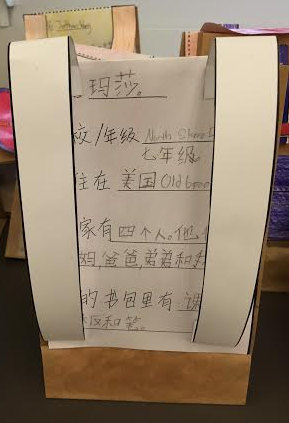 玛莎。
校/年级 North Shore
七年级。
住在 美国 Old
家有四个人。他
妈,爸爸,弟弟和
的书包里有 课
和笔。